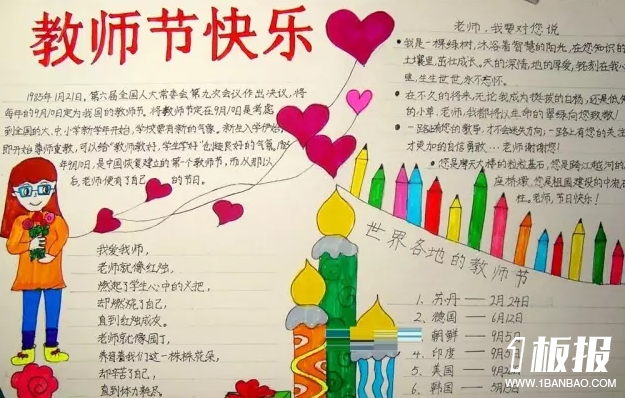 教师节快乐
1985年1月21日,第六届全国人大常委会第九次会议作出决议,将
每年的9月10日定为我国的教师节。将教师节定在9月10日是考虑
到全国的大、中小学新学年开始,学校要有新的气象。新生入学伊始,
即开始尊师重教,可以给“教师教好,学生学好”创造良好的气氛。
年9月10日,是中国恢复建立的第一个教师节,而从那以
后,老师便有了自己的节日。
老师,我要对您说
我是一棵绿树,沐浴着智慧的阳光,在您知识的
土壤里,茁壮成长。天的深情,地的厚爱,铭刻在我心
里,生生世世,永不忘怀。
在不久的将来,无论我成为挺拔的白杨,还是低矮
的小草,老师,我都将以生命的翠绿向您致敬!
一路上有您的教导,才不会迷失方向;一路上有您的关注,
才更加的自信勇敢…老师谢谢您!
您是摩天大楼的粒粒基石,您是跨江越河的
座桥墩,您是祖国建设的中流砥
柱。老师,节日快乐!
我爱我师,
老师就像红烛,
燃起了学生心中的火把,
却燃烧了自己,
直到红烛成灰。
老师就像园丁,
养育着我们这一株株花朵,
却辛苦了自己,
直到体力耗尽。
世界各地的教师节
1、苏丹——2月24日
2、德国——6月12日
朝鲜——9月5日
4、印度——9月5日
5、美国——9月2
6、韩国——5月15日
1板报
WWW.1BANBAO.COM